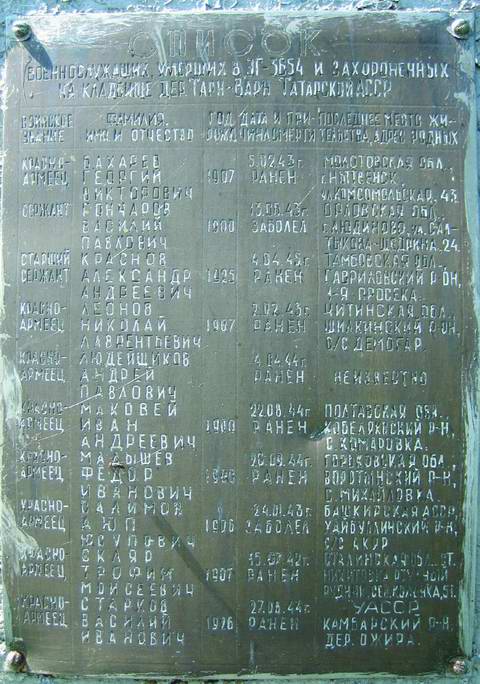 СПИСОК
ВОЕННОСЛУЖАЩИХ, УМЕРШИХ В ЭГ-3654 И ЗАХОРОНЕННЫХ
НА КЛАДБИЩЕ ДЕР. ТАРН-ВАРН ТАТАРСКОЙ АССР
ВОИНСКОЕ ФАМИЛИЯ, ГОД ДАТА И ПРИ- ПОСЛЕДНЕЕ МЕСТО ЖИ-
ЗВАНИЕ ИМЯ И ОТЧЕСТВО РОЖД. ЧИНА СМЕРТИ ТЕЛЬСТВА, АДРЕС РОДНЫХ
КРАСНО- БАХАРЕВ 5.02.43г.
АРМЕЕЦ ГЕОРГИЙ 1907 РАНЕН
ВИКТОРОВИЧ УЛ.КОМСОМОЛЬСКАЯ, 43.
СЕРЖАНТ ГОНЧАРОВ 13.06.43г. ОРЛОВСКАЯ ОБЛ.
ВАСИЛИЙ 1900 ЗАБОЛЕЛ Г.ЛЮДИНОВО, УЛ.САЛ-
ПАВЛОВИЧ ТЫКОВА-ЩЕДРИНА, 24.
СТАРШИЙ КРАСНОВ 4.04.45г. ТАМБОВСКАЯ ОБЛ.
СЕРЖАНТ АЛЕКСАНДР 1925 РАНЕН ГАВРИЛОВСКИЙ Р-ОН,
АНДРЕЕВИЧ 1-Я ПРОСЕКА.
КРАСНО- ЛЕОНОВ 2.02.43г. ЧИТИНСКАЯ ОБЛ.,
АРМЕЕЦ НИКОЛАЙ 1907 РАНЕН ШИЛКИНСКИЙ Р-ОН.
ЛАВРЕНТЬЕВИЧ С/С ДЕМОГАР.
КРАСНО- ЛЮДЕЙЩИКОВ 4.04.44г.
АРМЕЕЦ АНДРЕЙ РАНЕН НЕИЗВЕСТНО
ПАВЛОВИЧ
КРАСНО- МАКОВЕЙ 22.08.44г. ПОЛТАВСКАЯ ОБЛ.,
АРМЕЕЦ ИВАН 1900 РАНЕН КОБЕЛЯКСКИЙ Р-Н,
АНДРЕЕВИЧ С.КОМАРОВКА.
КРАСНО- МАЛЫШЕВ 44г. ГОРЬКОВСКАЯ ОБЛ.,
АРМЕЕЦ ФЕДОР РАНЕН ВОРОТЫНСКИЙ Р-Н,
ИВАНОВИЧ С.МИХАЙЛОВКА.
КРАСНО- САЛИМОВ 24.01.43г. БАШКИРСКАЯ АССР,
АРМЕЕЦ АЮП 1906 ЗАБОЛЕЛ ХАЙБУЛЛИНСКИЙ Р-Н,
ЮСУПОВИЧ С/С
КРАСНО- СКЛЯР СТАЛИНСКАЯ ОБЛ. СТ.
АРМЕЕЦ ТРОФИМ 1907 РАНЕН НИКИТОВКА
МОИСЕЕВИЧ
КРАСНО- СТАРКОВ 27.08.44г. УАССР
АРМЕЕЦ ВАСИЛИЙ 1926 РАНЕН КАМБАРСКИЙ Р-Н,
ИВАНОВИЧ ДЕР. ОЖИРА.